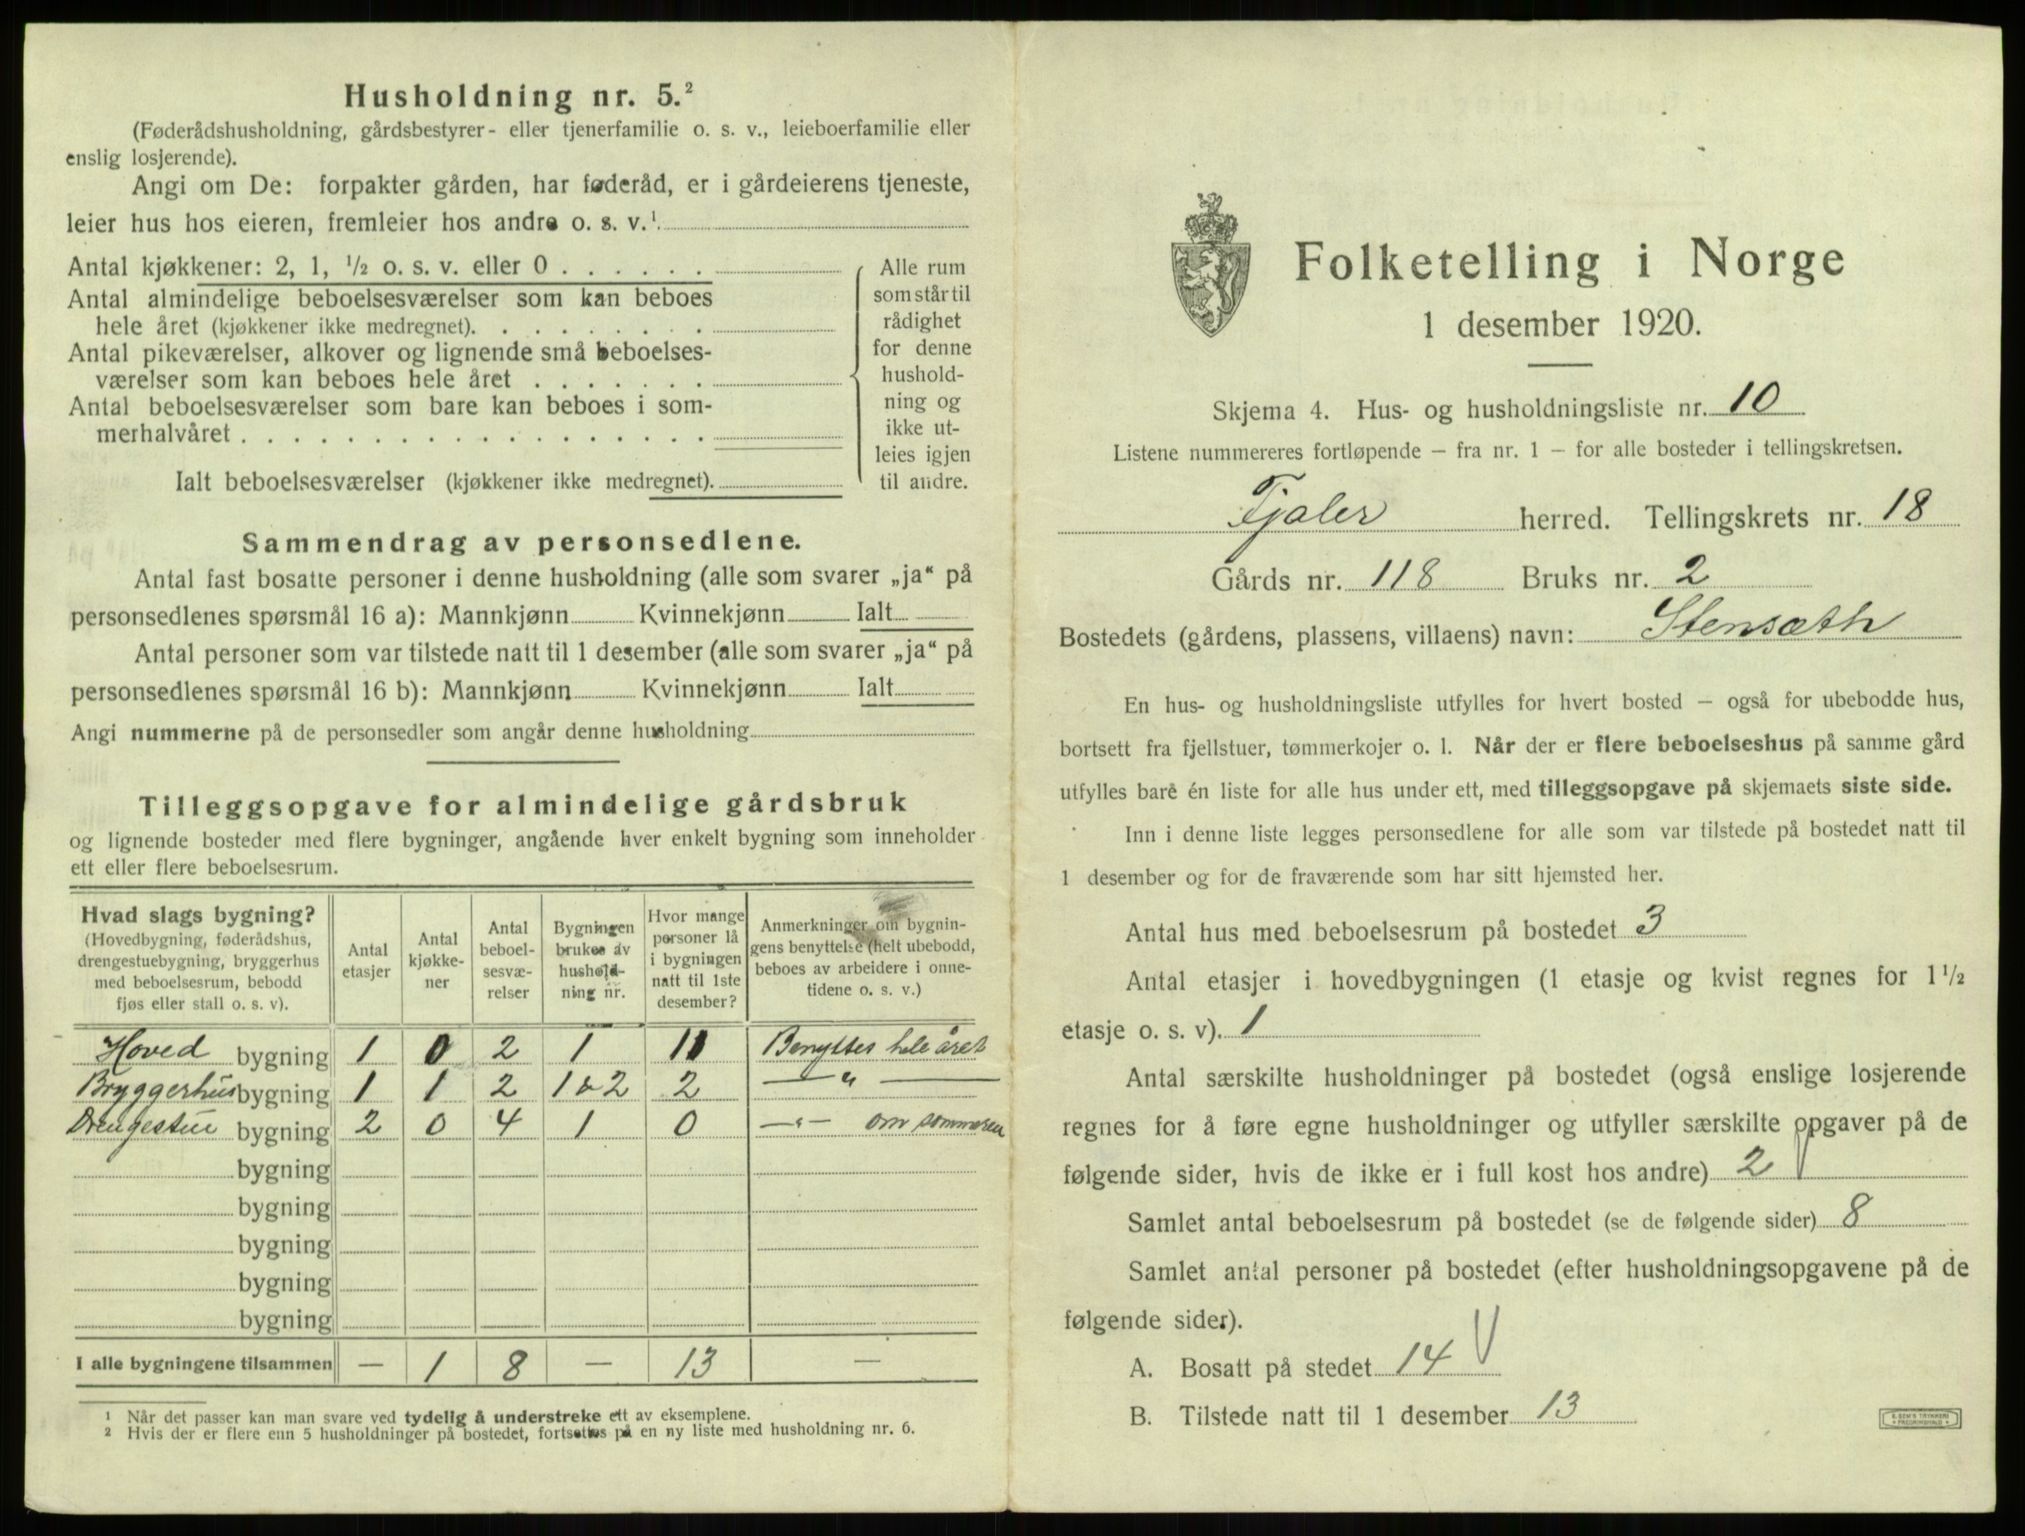 Husholdning nr. 5.²
(Føderådshusholdning, gårdsbestyrer- eller tjenerfamilie o. s. v., leieboerfamilie eller
enslig losjerende).
Angi om De: forpakter gården, har føderåd, er i gårdeierens tjeneste,
leier hus hos eieren, fremleier hos andre o. s. v.¹
Antal kjøkkener: 2, 1, ½ o. s. v. eller 0 . . . . . .
Antal almindelige beboelsesværelser som kan beboes
hele året (kjøkkener ikke medregnet). . . . . . . . .
Antal pikeværelser, alkover og lignende små beboelses-
værelser som kan beboes hele året . . . . . . .
Antal beboelsesværelser som bare kan beboes i som-
merhalvåret . . . . . . . . . . . . . . . . . .
Ialt beboelsesværelser (kjøkkener ikke medregnet).
Alle rum
som står til
rådighet
for denne
hushold-
ning og
ikke ut-
leies igjen
til andre.
Sammendrag av personsedlene.
Antal fast bosatte personer i denne husholdning (alle som svarer „ja“ på
personsedlenes spørsmål 16 a): Mannkjønn Kvinnekjønn Ialt
Antal personer som var tilstede natt til 1 desember (alle som svarer „ja“ på
personsedlenes spørsmål 16 b): Mannkjønn Kvinnekjønn Ialt
Angi nummerne på de personsedler som angår denne husholdning
Tilleggsopgave for almindelige gårdsbruk
og lignende bosteder med flere bygninger, angående hver enkelt bygning som inneholder
ett eller flere beboelsesrum.
Hvad slags bygning?
(Hovedbygning, føderådshus,
drengestuebygning, bryggerhus
med beboelsesrum, bebodd
fjøs eller stall o. s. v).
Antal
etasjer
Antal
kjøkke-
ner
Antal
beboel-
sesvæ-
relser
Bygningen
brukes av
hushold-
ning nr.
Hvor mange
personer lå
i bygningen
natt til 1ste
desember?
Anmerkninger om bygnin-
gens benyttelse (helt ubebodd,
beboes av arbeidere i onne-
tidene o. s. v.)
Hoved bygning 1 0 2 1 11 Benyttes hele året
Bryggerhus bygning 1 1 2 1 & 2 2 — „ —
Drengestue bygning 2 0 4 1 0 —„— om sommeren
bygning
bygning
bygning
bygning
bygning
I alle bygningene tilsammen — 1 8 — 13 —
¹ Når det passer kan man svare ved tydelig å understreke ett av eksemplene.
² Hvis der er flere enn 5 husholdninger på bostedet, fortsettes på en ny liste med husholdning nr. 6.
Folketelling i Norge
1 desember 1920.
Skjema 4. Hus- og husholdningsliste nr. 10
Listene nummereres fortløpende – fra nr. 1 – for alle bosteder i tellingskretsen.
Fjaler herred. Tellingskrets nr. 18
Gårds nr. 118 Bruks nr. 2
Bostedets (gårdens, plassens, villaens) navn: Stensæth
En hus- og husholdningsliste utfylles for hvert bosted – også for ubebodde hus,
bortsett fra fjellstuer, tømmerkojer o. l. Når der er flere beboelseshus på samme gård
utfylles bare én liste for alle hus under ett, med tilleggsopgave på skjemaets siste side.
Inn i denne liste legges personsedlene for alle som var tilstede på bostedet natt til
1 desember og for de fraværende som har sitt hjemsted her.
Antal hus med beboelsesrum på bostedet 3
Antal etasjer i hovedbygningen (1 etasje og kvist regnes for 1½
etasje o. s. v). 1
Antal særskilte husholdninger på bostedet (også enslige losjerende
regnes for å føre egne husholdninger og utfyller særskilte opgaver på de
følgende sider, hvis de ikke er i full kost hos andre) 2
Samlet antal beboelsesrum på bostedet (se de følgende sider) 8
Samlet antal personer på bostedet (efter husholdningsopgavene på de
følgende sider).
A. Bosatt på stedet 14
B. Tilstede natt til 1 desember 13
E. SEM'S TRYKKERI
FREDRIKSHALD